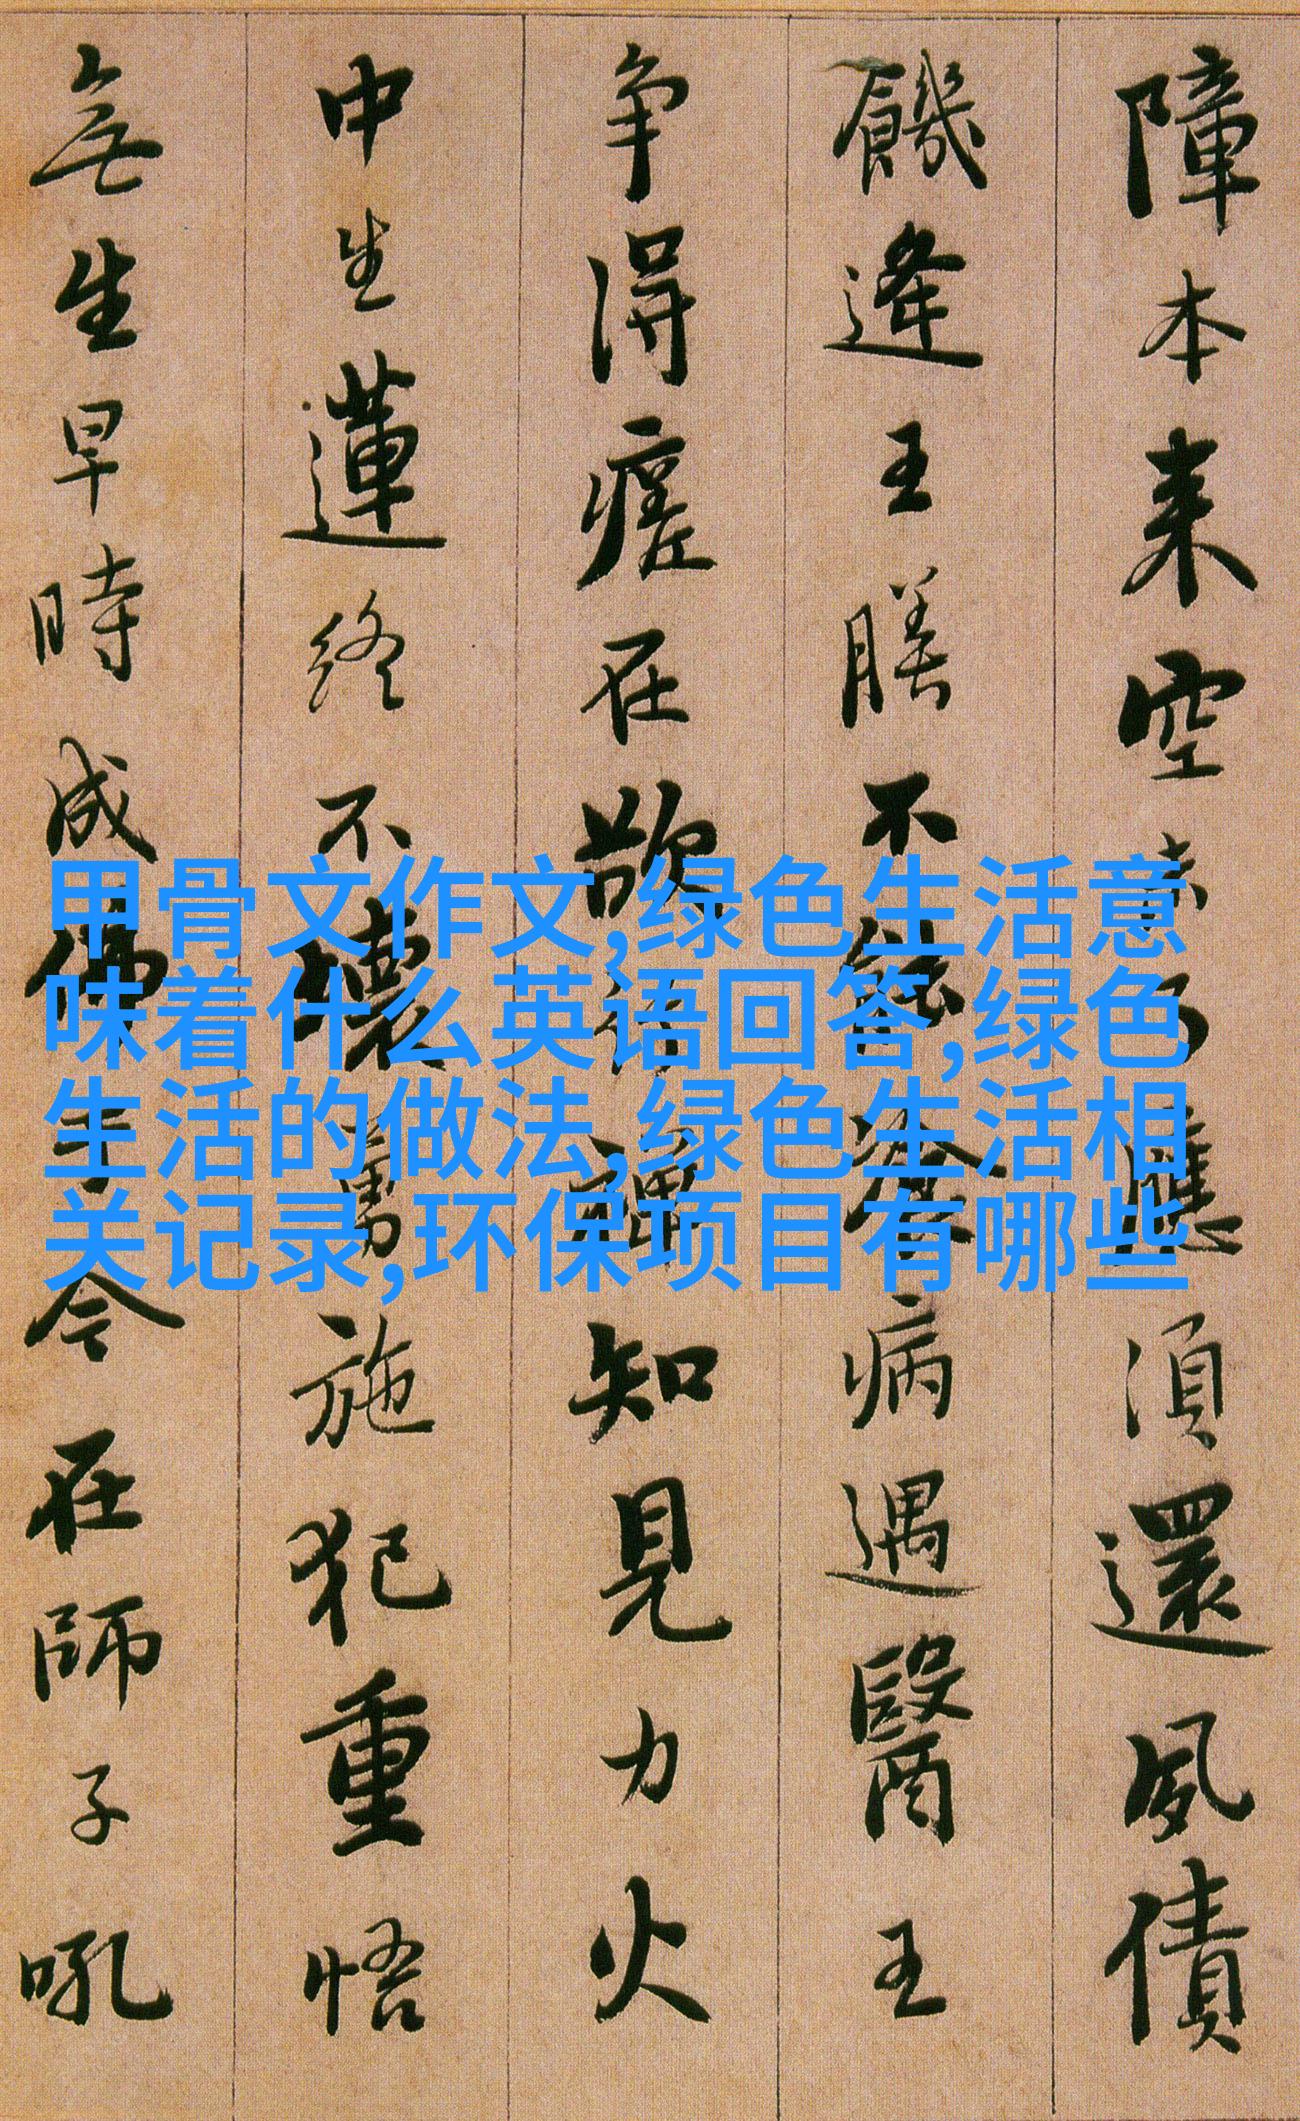 障本来空未了應須還夙債
饑逢王膳不能飡病遇醫王
争得瘥在欲行禪知見力火
中生蓮終不壞勇施犯重悟
無生早時成佛于今在師子吼
甲骨文作文,绿色生活意
味着什么英语回答,绿色
生活的做法,绿色生活相
关记录,环保项目有哪些